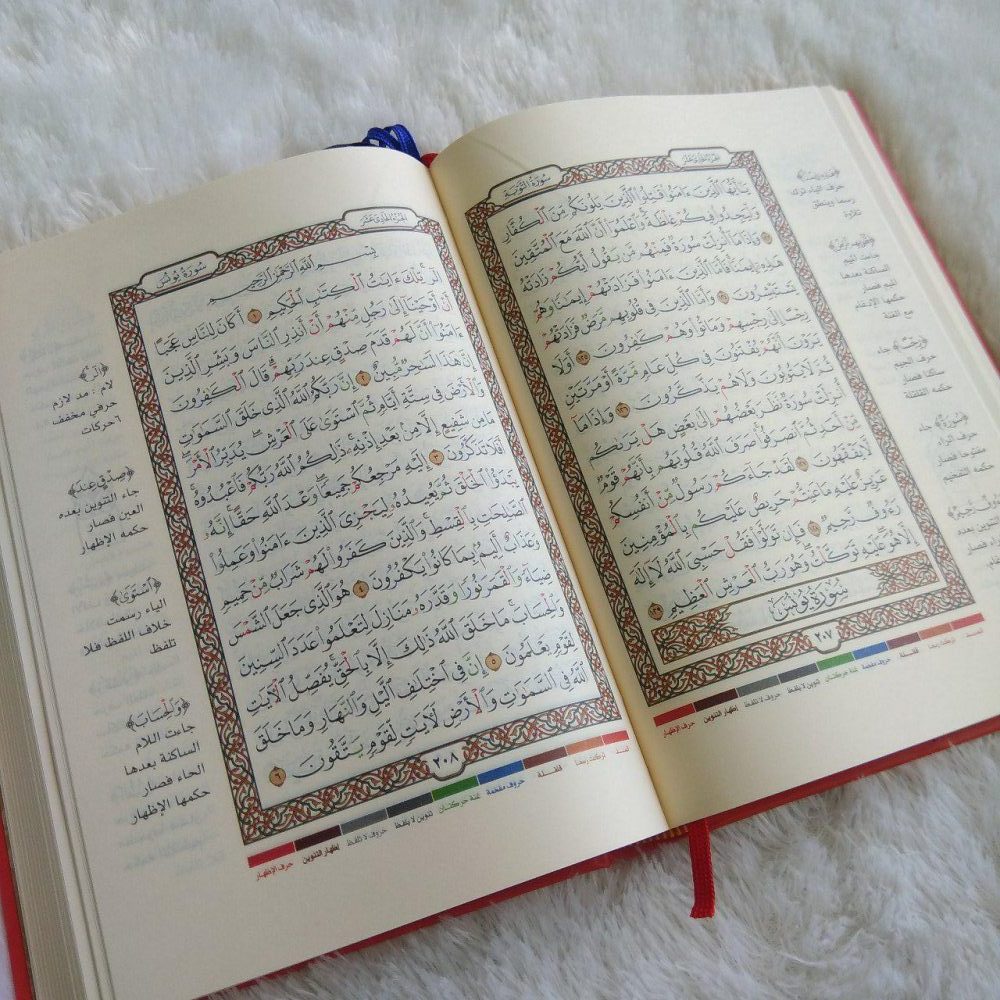 سُورَةُ التَّوْبَةِ
الجزء الحادي عشر
يَٰٓأَيُّهَا ٱلَّذِينَ ءَامَنُوا۟ قَٰتِلُوا۟ ٱلَّذِينَ يَلُونَكُم مِّنَ ٱلْكُفَّارِ
وَلْيَجِدُوا۟ فِيكُمْ غِلْظَةً ۚ وَٱعْلَمُوٓا۟ أَنَّ ٱللَّهَ مَعَ ٱلْمُتَّقِينَ ١٢٣
وَإِذَا مَآ أُنزِلَتْ سُورَةٌ فَمِنْهُم مَّن يَقُولُ أَيُّكُمْ زَادَتْهُ
هَٰذِهِۦٓ إِيمَٰنًا ۚ فَأَمَّا ٱلَّذِينَ ءَامَنُوا۟ فَزَادَتْهُمْ إِيمَٰنًا وَهُمْ
يَسْتَبْشِرُونَ ١٢٤ وَأَمَّا ٱلَّذِينَ فِى قُلُوبِهِم مَّرَضٌ فَزَادَتْهُمْ
رِجْسًا إِلَىٰ رِجْسِهِمْ وَمَاتُوا۟ وَهُمْ كَٰفِرُونَ ١٢٥ أَوَلَا
يَرَوْنَ أَنَّهُمْ يُفْتَنُونَ فِى كُلِّ عَامٍ مَّرَّةً أَوْ مَرَّتَيْنِ
ثُمَّ لَا يَتُوبُونَ وَلَا هُمْ يَذَّكَّرُونَ ١٢٦ وَإِذَا مَآ
أُنزِلَتْ سُورَةٌ نَّظَرَ بَعْضُهُمْ إِلَىٰ بَعْضٍ هَلْ يَرَىٰكُم
مِّنْ أَحَدٍ ثُمَّ ٱنصَرَفُوا۟ ۚ صَرَفَ ٱللَّهُ قُلُوبَهُم بِأَنَّهُمْ قَوْمٌ
لَّا يَفْقَهُونَ ١٢٧ لَقَدْ جَآءَكُمْ رَسُولٌ مِّنْ أَنفُسِكُمْ
عَزِيزٌ عَلَيْهِ مَا عَنِتُّمْ حَرِيصٌ عَلَيْكُم بِٱلْمُؤْمِنِينَ
رَءُوفٌ رَّحِيمٌ ١٢٨ فَإِن تَوَلَّوْا۟ فَقُلْ حَسْبِىَ ٱللَّهُ لَآ إِلَٰهَ
إِلَّا هُوَ ۖ عَلَيْهِ تَوَكَّلْتُ ۖ وَهُوَ رَبُّ ٱلْعَرْشِ ٱلْعَظِيمِ ١٢٩
سُورَةُ يُونُسَ
٢٠٧
حرف القيام نترك
رسما وينطق
تلاوة
جاءت الميم
الساكنة بعدها
الميم فصار
حكمها الإدغام
مع الغنة
جاء
حرف الجيم
ساكنا فصار
حكمه القلقلة
﴿سُورَةٌ﴾ جاء
حرف الراء
مفتوحا فصار
حكمه التفخيم
سُورَةُ يُونُسَ
الجزء الحادي عشر
بِسْمِ ٱللَّهِ ٱلرَّحْمَٰنِ ٱلرَّحِيمِ
الٓر ۚ تِلْكَ ءَايَٰتُ ٱلْكِتَٰبِ ٱلْحَكِيمِ ١ أَكَانَ لِلنَّاسِ عَجَبًا
أَنْ أَوْحَيْنَآ إِلَىٰ رَجُلٍ مِّنْهُمْ أَنْ أَنذِرِ ٱلنَّاسَ وَبَشِّرِ ٱلَّذِينَ
ءَامَنُوٓا۟ أَنَّ لَهُمْ قَدَمَ صِدْقٍ عِندَ رَبِّهِمْ ۗ قَالَ ٱلْكَٰفِرُونَ
إِنَّ هَٰذَا لَسَٰحِرٌ مُّبِينٌ ٢ إِنَّ رَبَّكُمُ ٱللَّهُ ٱلَّذِى خَلَقَ ٱلسَّمَٰوَٰتِ
وَٱلْأَرْضَ فِى سِتَّةِ أَيَّامٍ ثُمَّ ٱسْتَوَىٰ عَلَى ٱلْعَرْشِ ۖ يُدَبِّرُ ٱلْأَمْرَ ۖ
مَا مِن شَفِيعٍ إِلَّا مِنۢ بَعْدِ إِذْنِهِۦ ۚ ذَٰلِكُمُ ٱللَّهُ رَبُّكُمْ فَٱعْبُدُوهُ ۚ
أَفَلَا تَذَكَّرُونَ ٣ إِلَيْهِ مَرْجِعُكُمْ جَمِيعًا ۖ وَعْدَ ٱللَّهِ حَقًّا ۚ إِنَّهُۥ
يَبْدَؤُا۟ ٱلْخَلْقَ ثُمَّ يُعِيدُهُۥ لِيَجْزِىَ ٱلَّذِينَ ءَامَنُوا۟ وَعَمِلُوا۟
ٱلصَّٰلِحَٰتِ بِٱلْقِسْطِ ۚ وَٱلَّذِينَ كَفَرُوا۟ لَهُمْ شَرَابٌ مِّنْ حَمِيمٍ
وَعَذَابٌ أَلِيمٌۢ بِمَا كَانُوا۟ يَكْفُرُونَ ٤ هُوَ ٱلَّذِى جَعَلَ ٱلشَّمْسَ
ضِيَآءً وَٱلْقَمَرَ نُورًا وَقَدَّرَهُۥ مَنَازِلَ لِتَعْلَمُوا۟ عَدَدَ ٱلسِّنِينَ
وَٱلْحِسَابَ ۚ مَا خَلَقَ ٱللَّهُ ذَٰلِكَ إِلَّا بِٱلْحَقِّ ۚ يُفَصِّلُ ٱلْءَايَٰتِ
لِقَوْمٍ يَعْلَمُونَ ٥ إِنَّ فِى ٱخْتِلَٰفِ ٱلَّيْلِ وَٱلنَّهَارِ وَمَا خَلَقَ
ٱللَّهُ فِى ٱلسَّمَٰوَٰتِ وَٱلْأَرْضِ لَءَايَٰتٍ لِّقَوْمٍ يَتَّقُونَ ٦
٢٠٨
حرف الإظهار إظهار التنوين حروف لا تلفظ تنوين لا يلفظ غنة حركتان حروف مفخمة قلقلة
﴿الٓر﴾
لام - مد لازم
حرفي مخفف
٦حركات
﴿صِدْقٍ عِندَ﴾
جاء التنوين بعده
العين فصار
حكمه الإظهار
﴿ٱسْتَوَىٰ﴾
الياء رسمت
خلاف اللفظ فلا
تلفظ
﴿وَٱلْحِسَابَ﴾
جاءت اللام
الساكنة بعدها
الحاء فصار
حكمها الإظهار